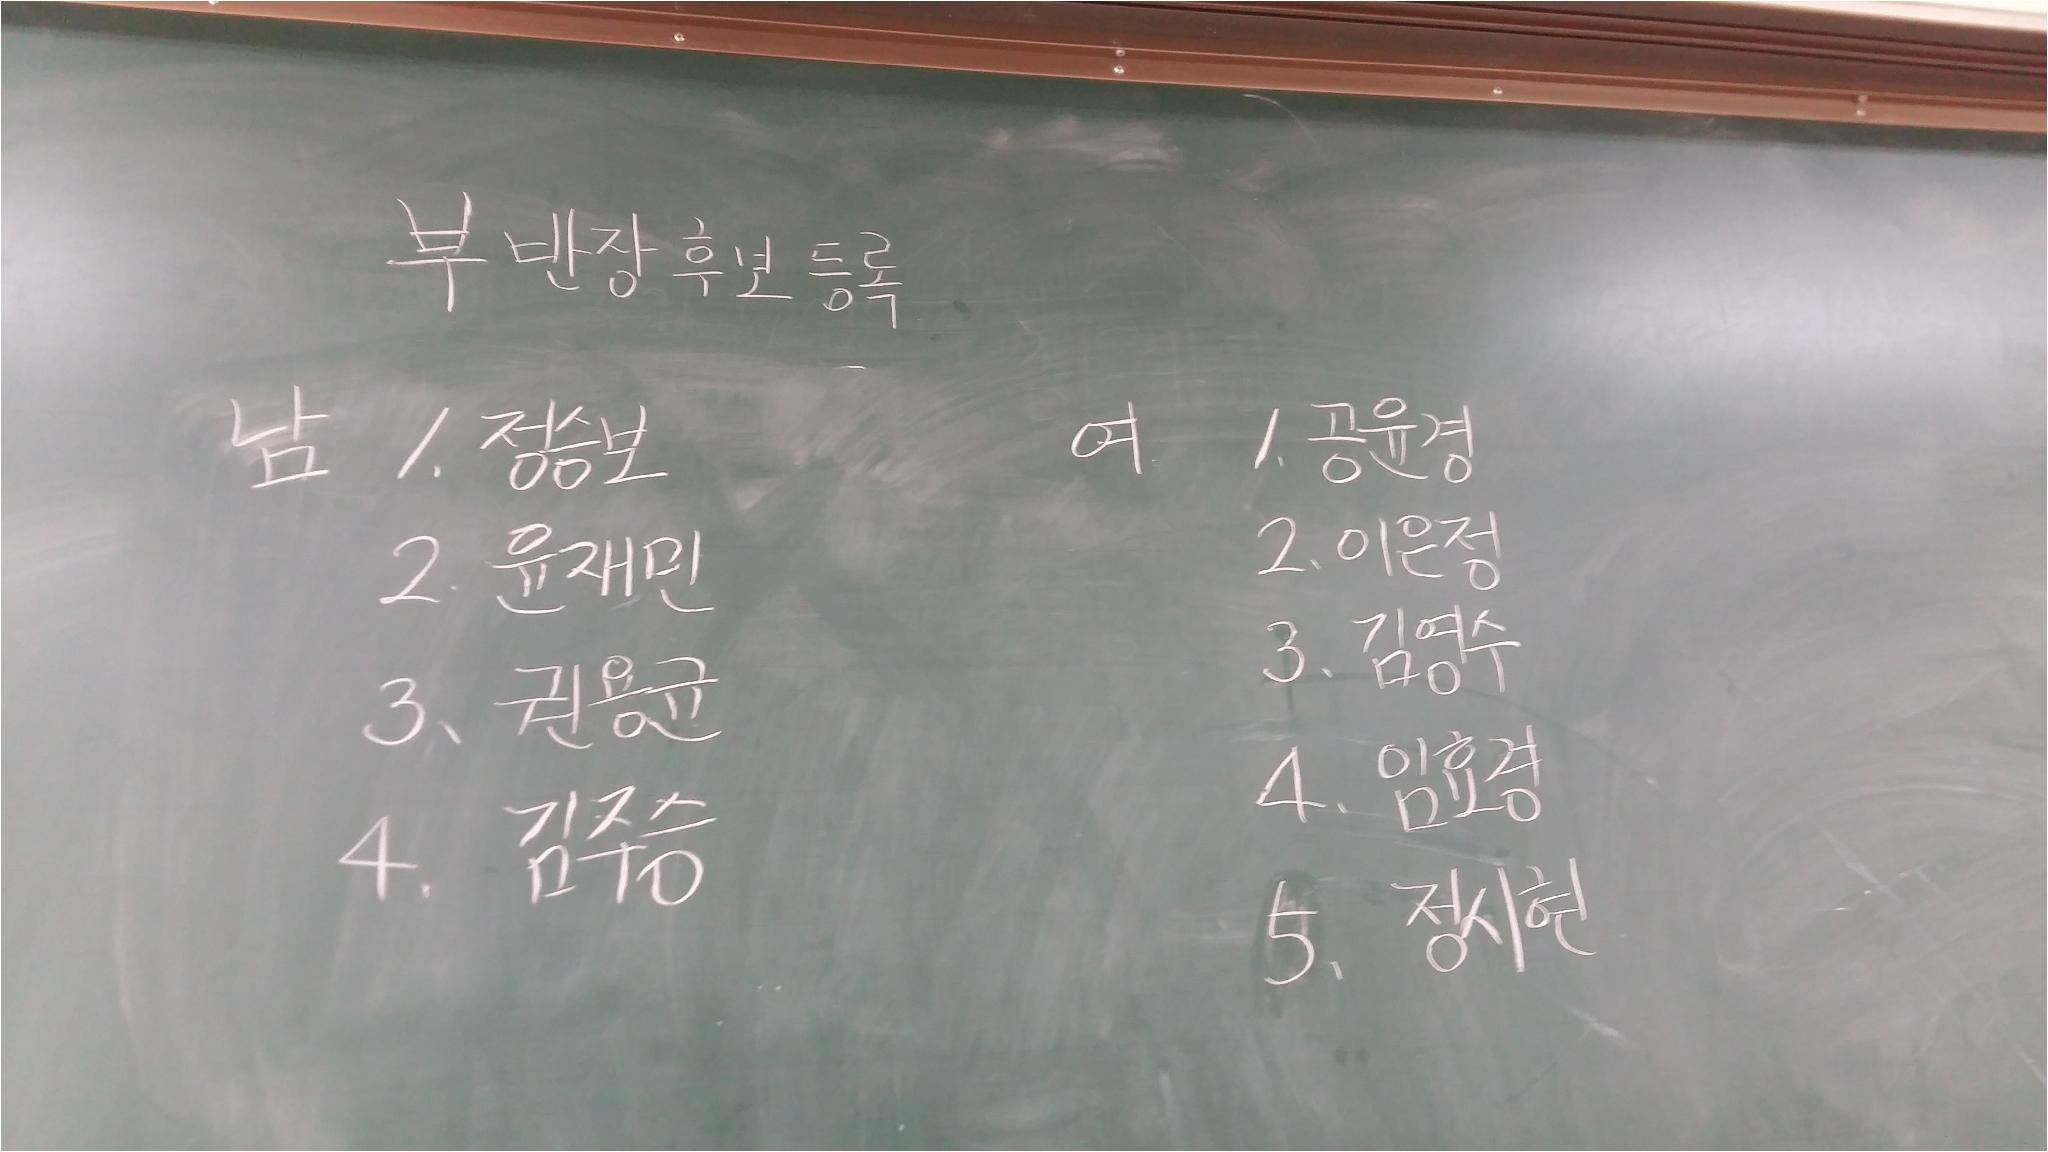 부반장 후보 등록
남 1. 정승보
2. 윤재민
3. 권용균
4. 김주승
여 1. 공윤경
2. 이은정
3. 김영수
4. 임효경
5. 정시현